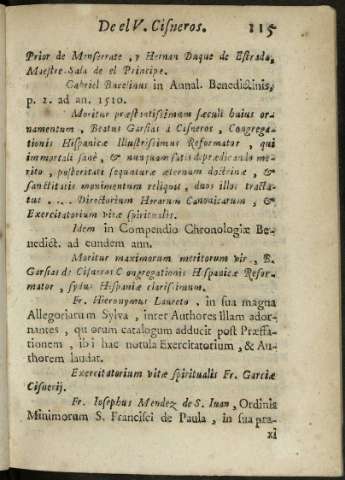 De el V. Cisneros. 115
Prior de Monserrate, y Hernan Duque de Estrada,
Maestre-Sala de el Principe.
Gabriel Bucelinus in Annal. Benedictinis,
p. 2. ad an. 1510.
Moritur præstantissimum sæculi huius or-
namentum, Beatus Garsias à Cisneros, Congrega-
tionis Hispanicæ Illustrissimus Reformator, qui
immortali sanè, & nunquam satis deprædicando me-
rito, posteritati sequuturæ æternum doctrinæ, &
sanctitatis monimentum reliquit, duos illos tracta-
tus .... Directorium Horarum Canonicarum, &
Exercitatorium vitæ spiritualis.
Idem in Compendio Chronologiæ Be-
nedict. ad eundem ann.
Moritur maximorum meritorum vir, B.
Garsias de Cisneros Congregationis Hispanicæ Refor-
mator, sydus Hispaniæ clarissimum.
Fr. Hieronymus Laureto, in sua magna
Allegoriarum Sylva, inter Authores illam ador-
nantes, quorum catalogum adducit post Præfa-
tionem, ibi hac notula Exercitatorium, & Au-
thorem laudat.
Exercitatorium vitæ spiritualis Fr. Garciæ
Cisnerij.
Fr. Iosephus Mendez de S. Iuan, Ordinis
Minimorum S. Francisci de Paula, in sua pra-
xi